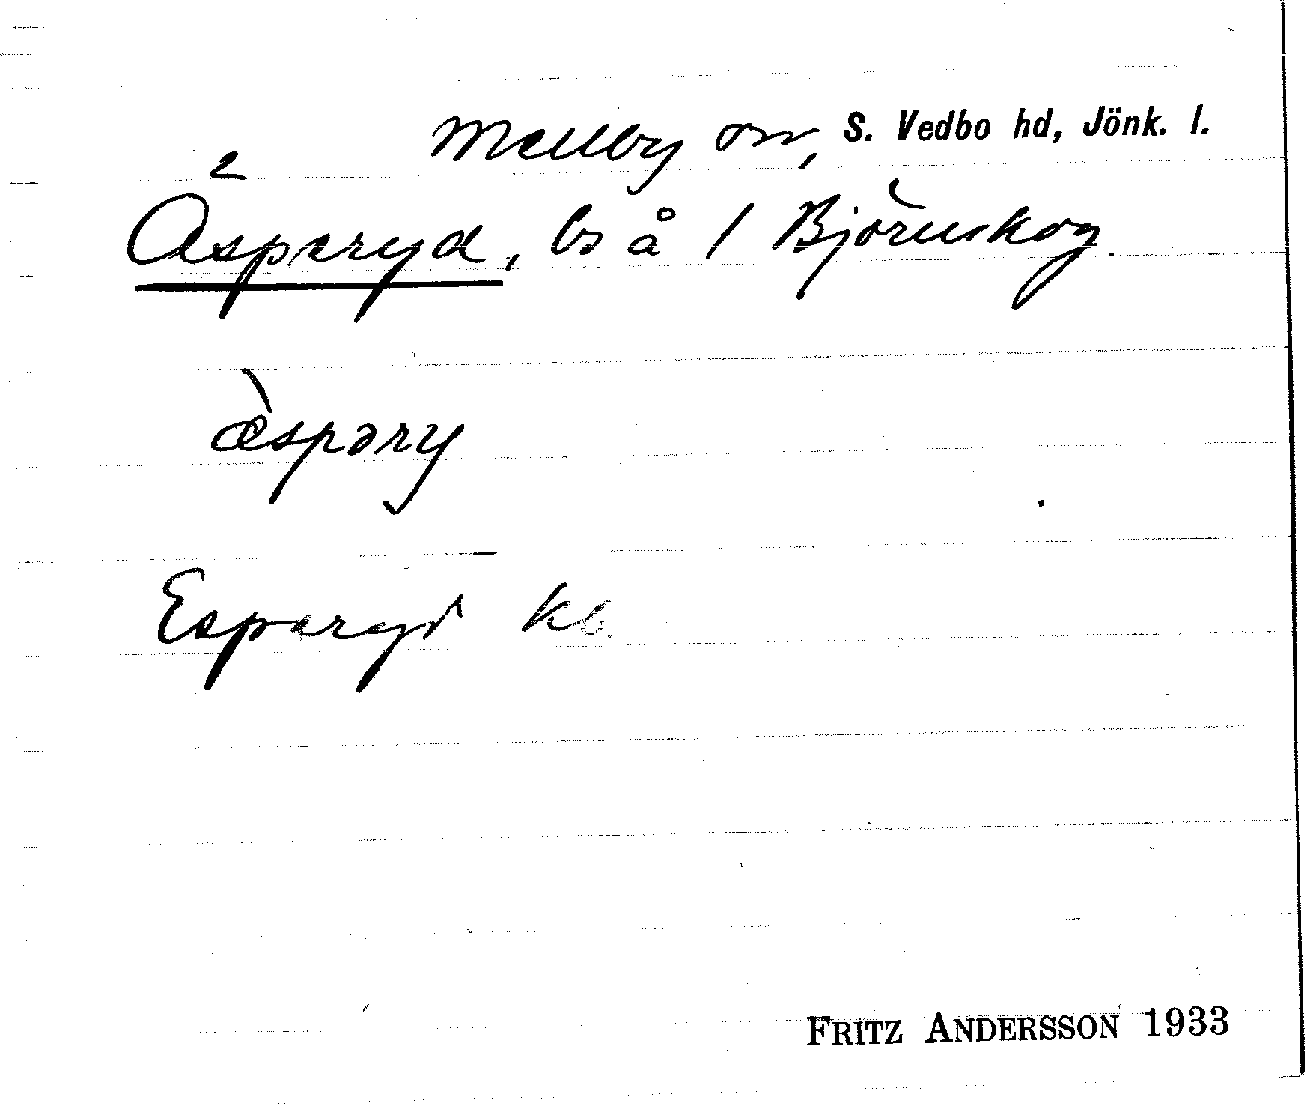 Mellby sn, S. Vedbo hd, Jönk. l.
Äsperyd, bs å 1 Björnskog
æ̀spəry
Esperyd kb.
FRITZ ANDERSSON 1933